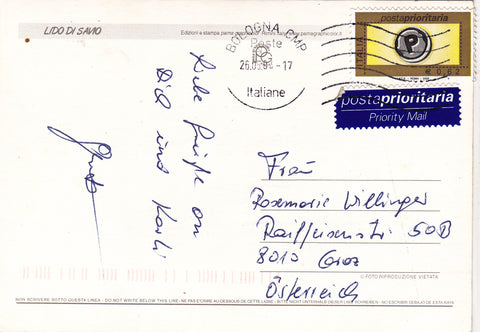 LIDO DI SAVIO
BOLOGNA CMP
Poste
26.05.03-17
Italiane
postaprioritaria
P
ITALIA
€ 0,62
postaprioritaria
Priority Mail
Liebe Grüße an
Dich und Karli
Frau
Rosemarie Willinger
Raiffeisenstr. 50B
8010 Graz
Österreich
© FOTO RIPRODUZIONE VIETATA
NON SCRIVERE SOTTO QUESTA LINEA - DO NOT WRITE BELOW THIS LINE - NE PAS ECRIRE AU-DESSOUS DE CETTE LIGNE - BITTE NICHT UNTERHALB DIESER LINIE SCHREIBEN - NO ESCRIBIR DEBAJO DE ESTA RAYA